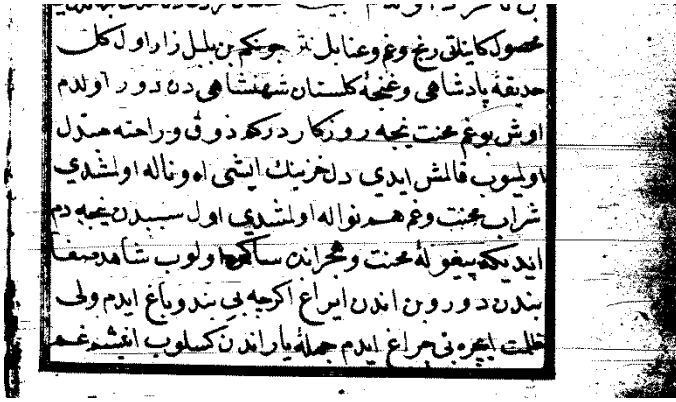 محصول کایناتی رنج و غم و عنا بل نثر چونکم بن بلبل زار اول کل
حدیقهٔ پادشاهی و غنچهٔ کلستان شهنشاهی دن دور اولدم
اوش بو غم محنت نیجه روزکار درکه ذوق و راحته مبدل
اولمیوب قالمش ایدی دل حزینك ایشی اه و ناله اولمشدی
شراب محنت و غم هم نواله اولمشدی اول سببدن نیجه دم
ایدیکه پیغولهٔ محنت و هجرانده ساکن اولوب شاهد صفا
بندن دور و بن اندن ایراغ اکرچه بی بند و باغ ایدم ولی
ظلمت ایچره بی چراغ ایدم جملهٔ یاراندن کسلوب